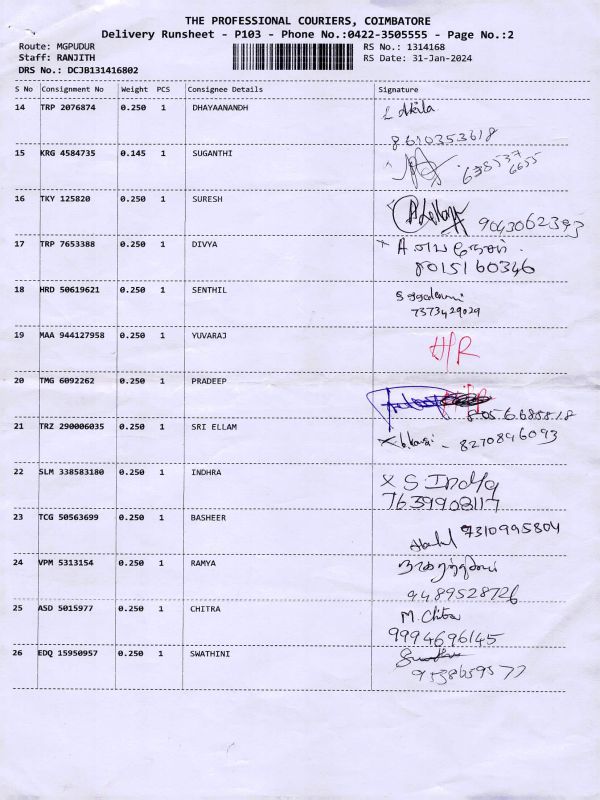 THE PROFESSIONAL COURIERS, COIMBATORE
Delivery Runsheet - P103 - Phone No.:0422-3505555 - Page No.:2
Route: MGPUDUR RS No.: 1314168
Staff: RANJITH RS Date: 31-Jan-2024
DRS No.: DCJB131416802
S No Consignment No Weight PCS Consignee Details Signature
14 TRP 2076874 0.250 1 DHAYAANANDH
L Akila
8610353618
15 KRG 4584735 0.145 1 SUGANTHI
638537
6655
16 TKY 125820 0.250 1 SURESH
9043062393
17 TRP 7653388 0.250 1 DIVYA
8015160346
18 HRD 50619621 0.250 1 SENTHIL
7373429029
19 MAA 944127958 0.250 1 YUVARAJ
H/R
20 TMG 6092262 0.250 1 PRADEEP
21 TRZ 290006035 0.250 1 SRI ELLAM
8270846093
22 SLM 338583180 0.250 1 INDHRA
X S. Indra
7639908117
23 TCG 50563699 0.250 1 BASHEER
7310995804
24 VPM 5313154 0.250 1 RAMYA
9489528726
25 ASD 5015977 0.250 1 CHITRA
M. Chitra
9994696145
26 EDQ 15950957 0.250 1 SWATHINI
9538659577